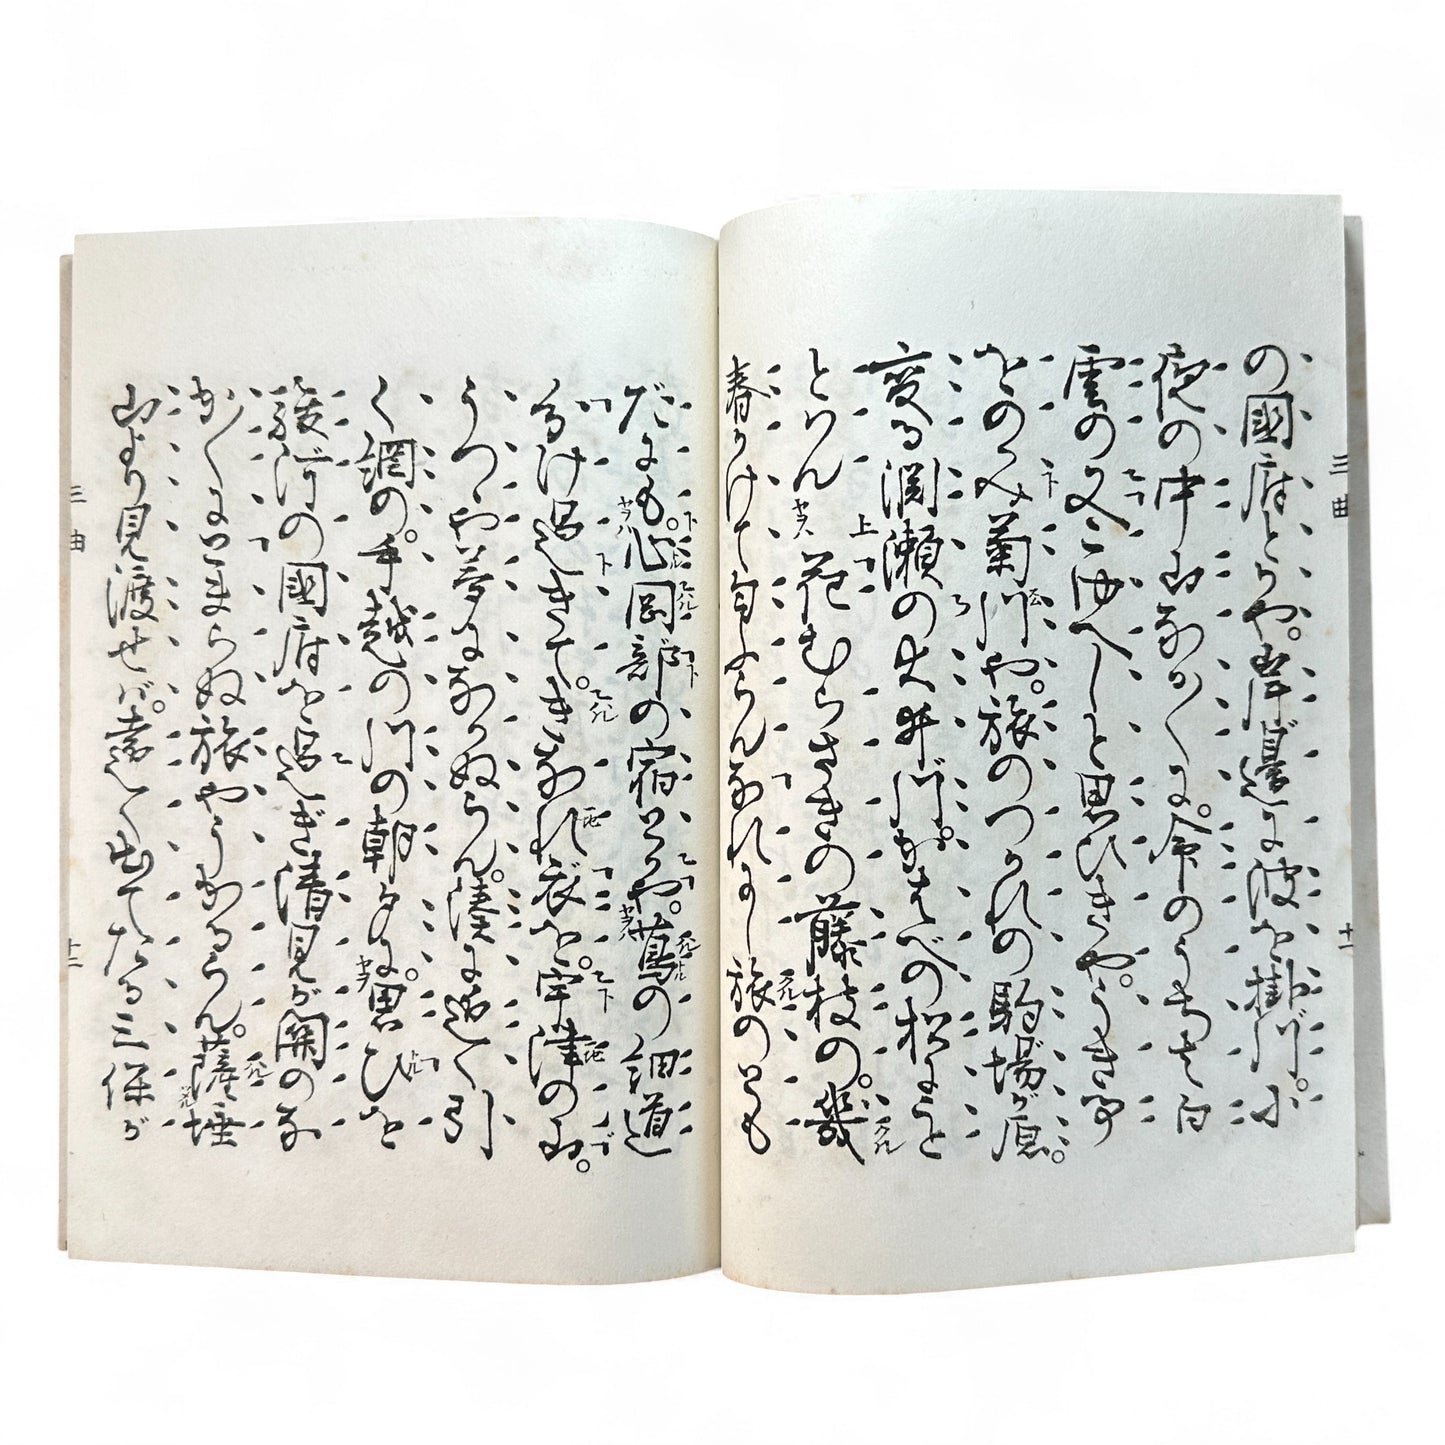 の國府とかや。岸邊に波を掛川。小
夜の中山なか〱に。命のうちは白
雲の又こゆべしと思ひきや。うき事
をのみ菊川や。旅のつかれの駒場が原。
変る渕瀬の大井川。かはべの松にこと
とはん 花むらさきの藤枝の。幾
春かけて匂ふらんなれにし旅のとも
だにも。心岡部の宿とかや。蔦の細道
分け過ぎて。きなれ衣を。宇津の山。
うつゝや夢になりぬらん。湊に近く引
く網の。手越の川の朝夕に。思ひを
駿河の國府を過ぎ清見が関のな
か〱にとまらぬ旅やうかるらん。薩埵
山より見渡せば。遠く出てたる三保が
三曲
十一
三曲
十二